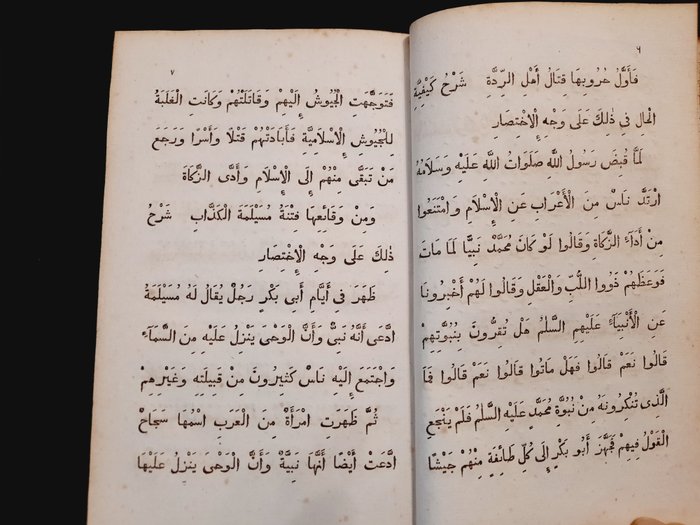 ٦
فَأَوَّلُ حُرُوبِهَا قِتَالُ أَهْلِ الرِّدَّةِ شَرْحُ كَيْفِيَّةِ
الْحَالِ فِي ذٰلِكَ عَلَى وَجْهِ الْإِخْتِصَارِ
لَمَّا قُبِضَ رَسُولُ اللّٰهِ صَلَوَاتُ اللّٰهِ عَلَيْهِ وَسَلَامُهُ
ارْتَدَّ نَاسٌ مِنَ الْأَعْرَابِ عَنِ الْإِسْلَامِ وَامْتَنَعُوا
مِنْ أَدَاءِ الزَّكَاةِ وَقَالُوا لَوْ كَانَ مُحَمَّدٌ نَبِيًّا لَمَا مَاتَ
فَوَعَظَهُمْ ذَوُوا اللُّبِّ وَالْعَقْلِ وَقَالُوا لَهُمْ أَخْبِرُونَا
عَنِ الْأَنْبِيَاءِ عَلَيْهِمِ السَّلَمُ هَلْ تُقِرُّونَ بِنُبُوَّتِهِمْ
قَالُوا نَعَمْ قَالُوا فَهَلْ مَاتُوا قَالُوا نَعَمْ قَالُوا فَمَا
الَّذِى تُنْكِرُونَهُ مِنْ نُبُوَّةِ مُحَمَّدٍ عَلَيْهِ السَّلَمُ فَلَمْ يَنْجَعِ
الْقَوْلُ فِيهِمْ فَجَهَّزَ أَبُو بَكْرٍ إِلَى كُلِّ طَائِفَةٍ مِنْهُمْ جَيْشًا
٧
فَتَوَجَّهَتِ الْجُيُوشُ إِلَيْهِمْ وَقَاتَلَتْهُمْ وَكَانَتِ الْغَلَبَةُ
لِلْجُيُوشِ الْإِسْلَامِيَّةِ فَأَبَادَتْهُمْ قَتْلًا وَأَسْرًا وَرَجَعَ
مَنْ تَبَقَّى مِنْهُمْ إِلَى الْإِسْلَامِ وَأَدَّى الزَّكَاةَ
وَمِنْ وَقَائِعِهَا فِتْنَةُ مُسَيْلِمَةَ الْكَذَّابِ شَرْحُ
ذٰلِكَ عَلَى وَجْهِ الْإِخْتِصَارِ
ظَهَرَ فِي أَيَّامِ أَبِى بَكْرٍ رَجُلٌ يُقَالُ لَهُ مُسَيْلِمَةُ
ادَّعَى أَنَّهُ نَبِىٌّ وَأَنَّ الْوَحْىَ يَنْزِلُ عَلَيْهِ مِنَ السَّمَاءِ
وَاجْتَمَعَ إِلَيْهِ نَاسٌ كَثِيرُونَ مِنْ قَبِيلَتِهِ وَغَيْرِهِمْ
ثُمَّ ظَهَرَتِ امْرَأَةٌ مِنَ الْعَرَبِ اسْمُهَا سَجَاحْ
ادَّعَتْ أَيْضًا أَنَّهَا نَبِيَّةٌ وَأَنَّ الْوَحْىَ يَنْزِلُ عَلَيْهَا